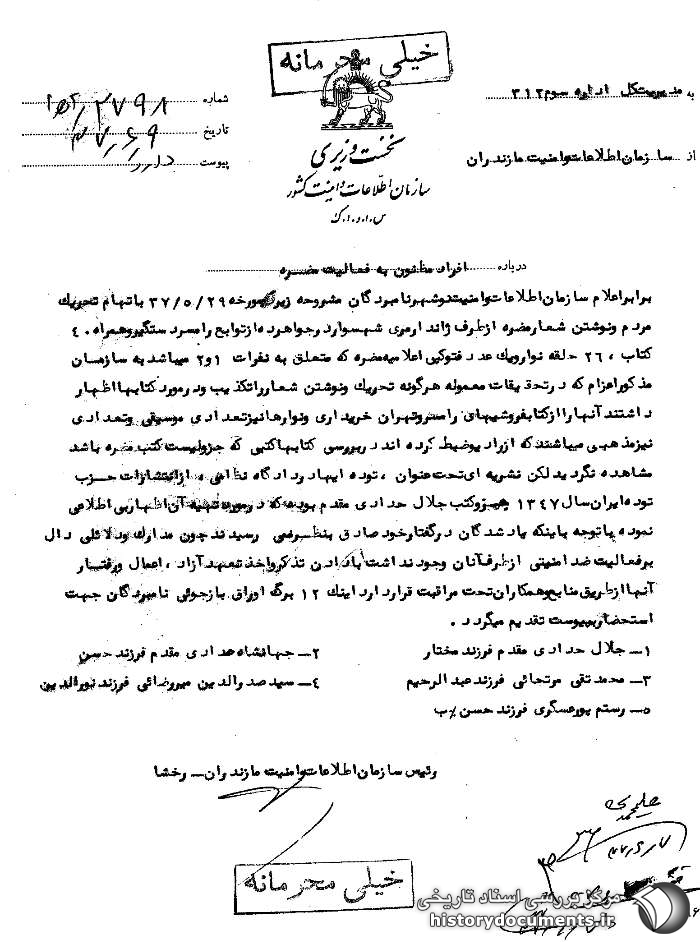 خیلی محرمانه
به مدیریت کل اداره سوم ۳۱۲
از سازمان اطلاعات و امنیت مازندران
شماره
تاریخ ۴۷/۶/۹
پیوست دارد
نخست وزیری
سازمان اطلاعات و امنیت کشور
س.ا.و.ا.ک
درباره افراد مظنون به فعالیت مضره
برابر اعلام سازمان اطلاعات و امنیت نوشهر نامبردگان مشروحه زیر در مورخه ۳۷/۵/۲۹ با تهام تحریک
مردم و نوشتن شعار مضره از طرف ژاندارمری شهسوار در جواهرده از توابع رامسر دستگیر و همراه ۴
کتاب ، ۲۶ حلقه نوار و یک عدد فتوکپی اعلامیه مضره که متعلق به نفرات ۱و۲ میباشد به سازمان
مذکور اعزام که در تحقیقات معموله هرگونه تحریک و نوشتن شعار را تکذیب و در مورد کتابها اظهار
داشتند آنها را از کتابفروشیهای رامسر و تهران خریداری و نوارها نیز تعدادی موسیقی و تعدادی
نیز مذهبی میباشند که از رادیو ضبط کرده اند در بررسی کتابها کتبی که جزو لیست کتب مضره باشد
مشاهده نگردید لکن نشریه ای تحت عنوان ، توده ایها در دادگاه نظامی ، از انتشارات حزب
توده ایران سال ۱۳۴۷ جزو کتب جلال حدادی مقدم بوده که در مورد تهیه آن اظهار بی اطلاعی
نموده با توجه باینکه یاد شدگان در گفتار خود صادق بنظر نمی رسیدند چون مدارک و دلائلی دال
بر فعالیت ضد امنیتی از طرف آنان وجود نداشت با دادن تذکر و اخذ تعهد آزاد ، اعمال و رفتار
آنها از طریق منابع و همکاران تحت مراقبت قرار دارد اینک ۱۲ برگ اوراق بازجوئی نامبردگان جهت
استحضار بپیوست تقدیم میگردد .
۱ـ جلال حدادی مقدم فرزند مختار ۲ـ جهانشاه حدادی مقدم فرزند حسن
۳ـ محمد تقی مرتجائی فرزند عبدالرحیم ۴ـ سید صدرالدین میررضائی فرزند نورالدین
۵ـ رستم پورعسگری فرزند حسن
رئیس سازمان اطلاعات و امنیت مازندران ـ رخشا
خیلی محرمانه
مرکز بررسی اسناد تاریخی
historydocuments.ir